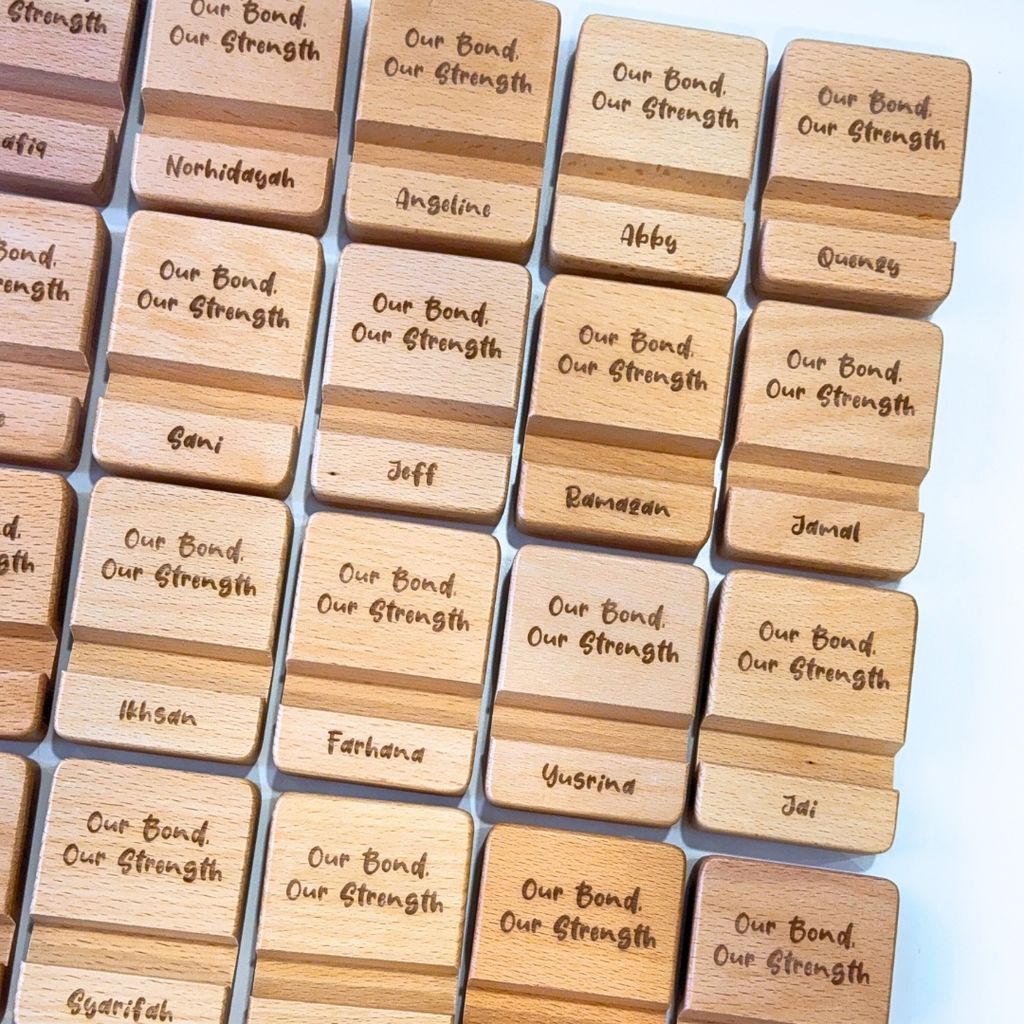 Strength
afiq
Our Bond,
Our Strength
Norhidayah
Our Bond,
Our Strength
Angeline
Our Bond,
Our Strength
Abby
Our Bond,
Our Strength
Quenzy
Bond,
rength
e
Our Bond,
Our Strength
Sani
Our Bond,
Our Strength
Jeff
Our Bond,
Our Strength
Ramazan
Our Bond,
Our Strength
Jamal
d,
gth
Our Bond,
Our Strength
Ikhsan
Our Bond,
Our Strength
Farhana
Our Bond,
Our Strength
Yusrina
Our Bond,
Our Strength
Jai
Our Bond,
Our Strength
Syarifah
Our Bond,
Our Strength
Our Bond,
Our Strength
Our Bond,
Our Strength